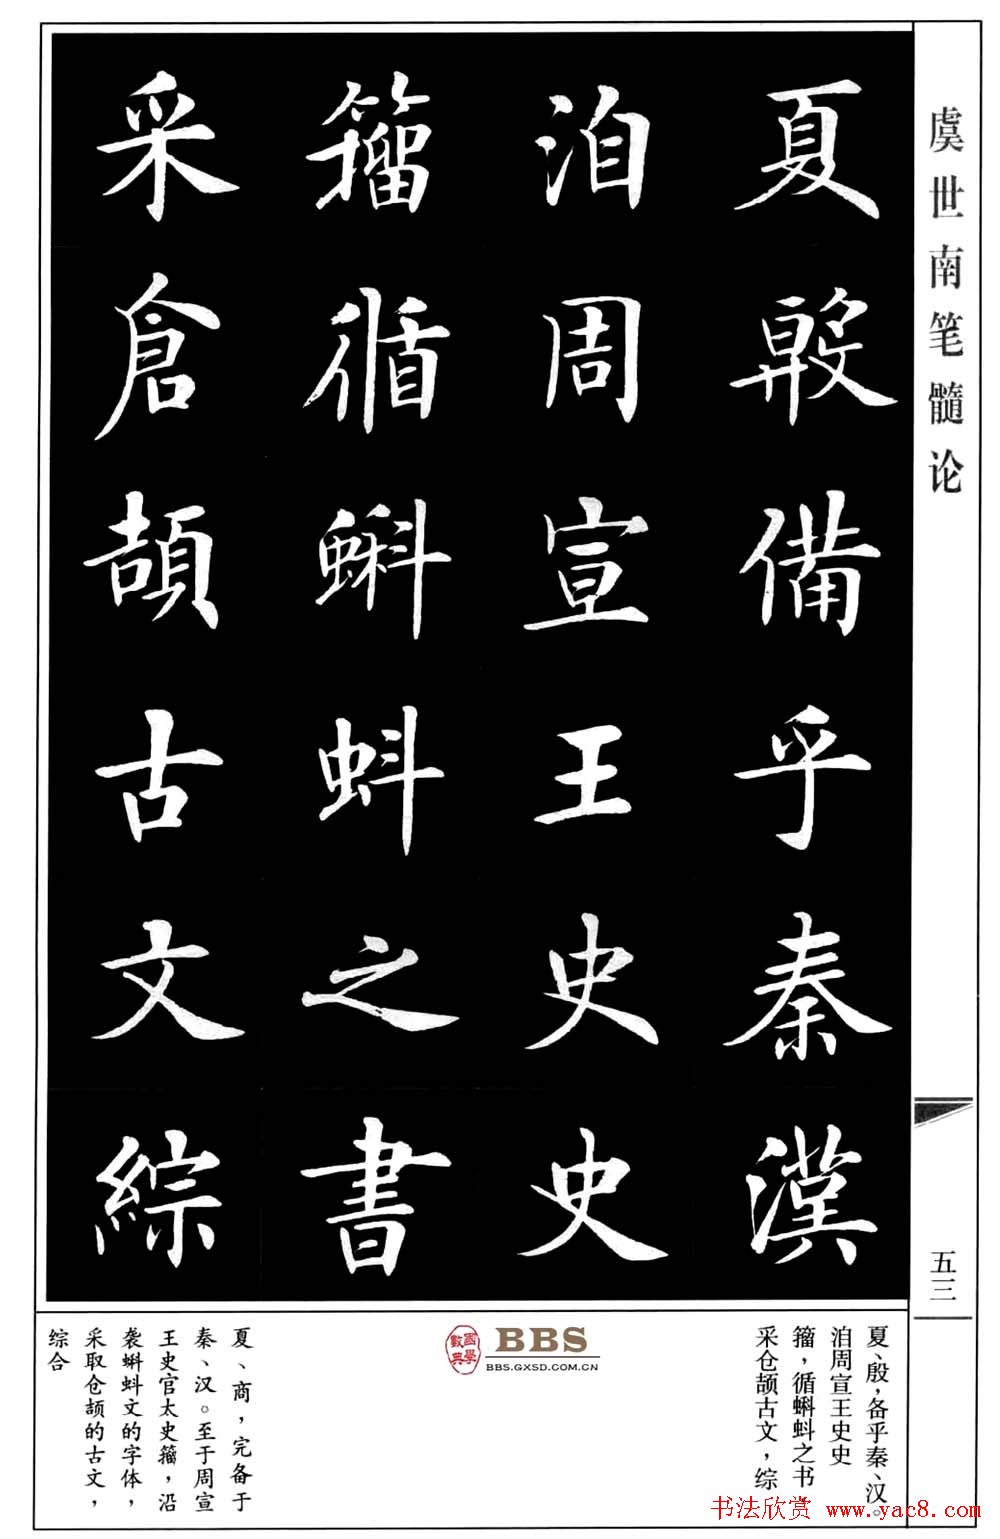 虞世南笔髓论
五三
夏殷備乎秦漢
洎周宣王史史
籀循蝌蚪之書
采倉頡古文綜
夏、殷，备乎秦、汉。
洎周宣王史史
籀，循蝌蚪之书，
采仓颉古文，综
國學數典
BBS
BBS.GXSD.COM.CN
夏、商，完备于
秦、汉。至于周宣
王史官太史籀，沿
袭蝌蚪文的字体，
采取仓颉的古文，
综合
书法欣赏 www.yac8.com